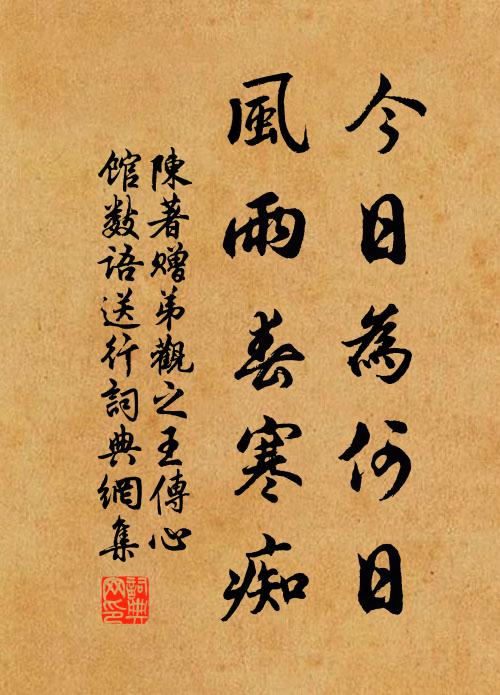 今日為何日
風雨春寒痴
陳著贈弟觀之王傳心
館数语送行詞典網集
詞典网印